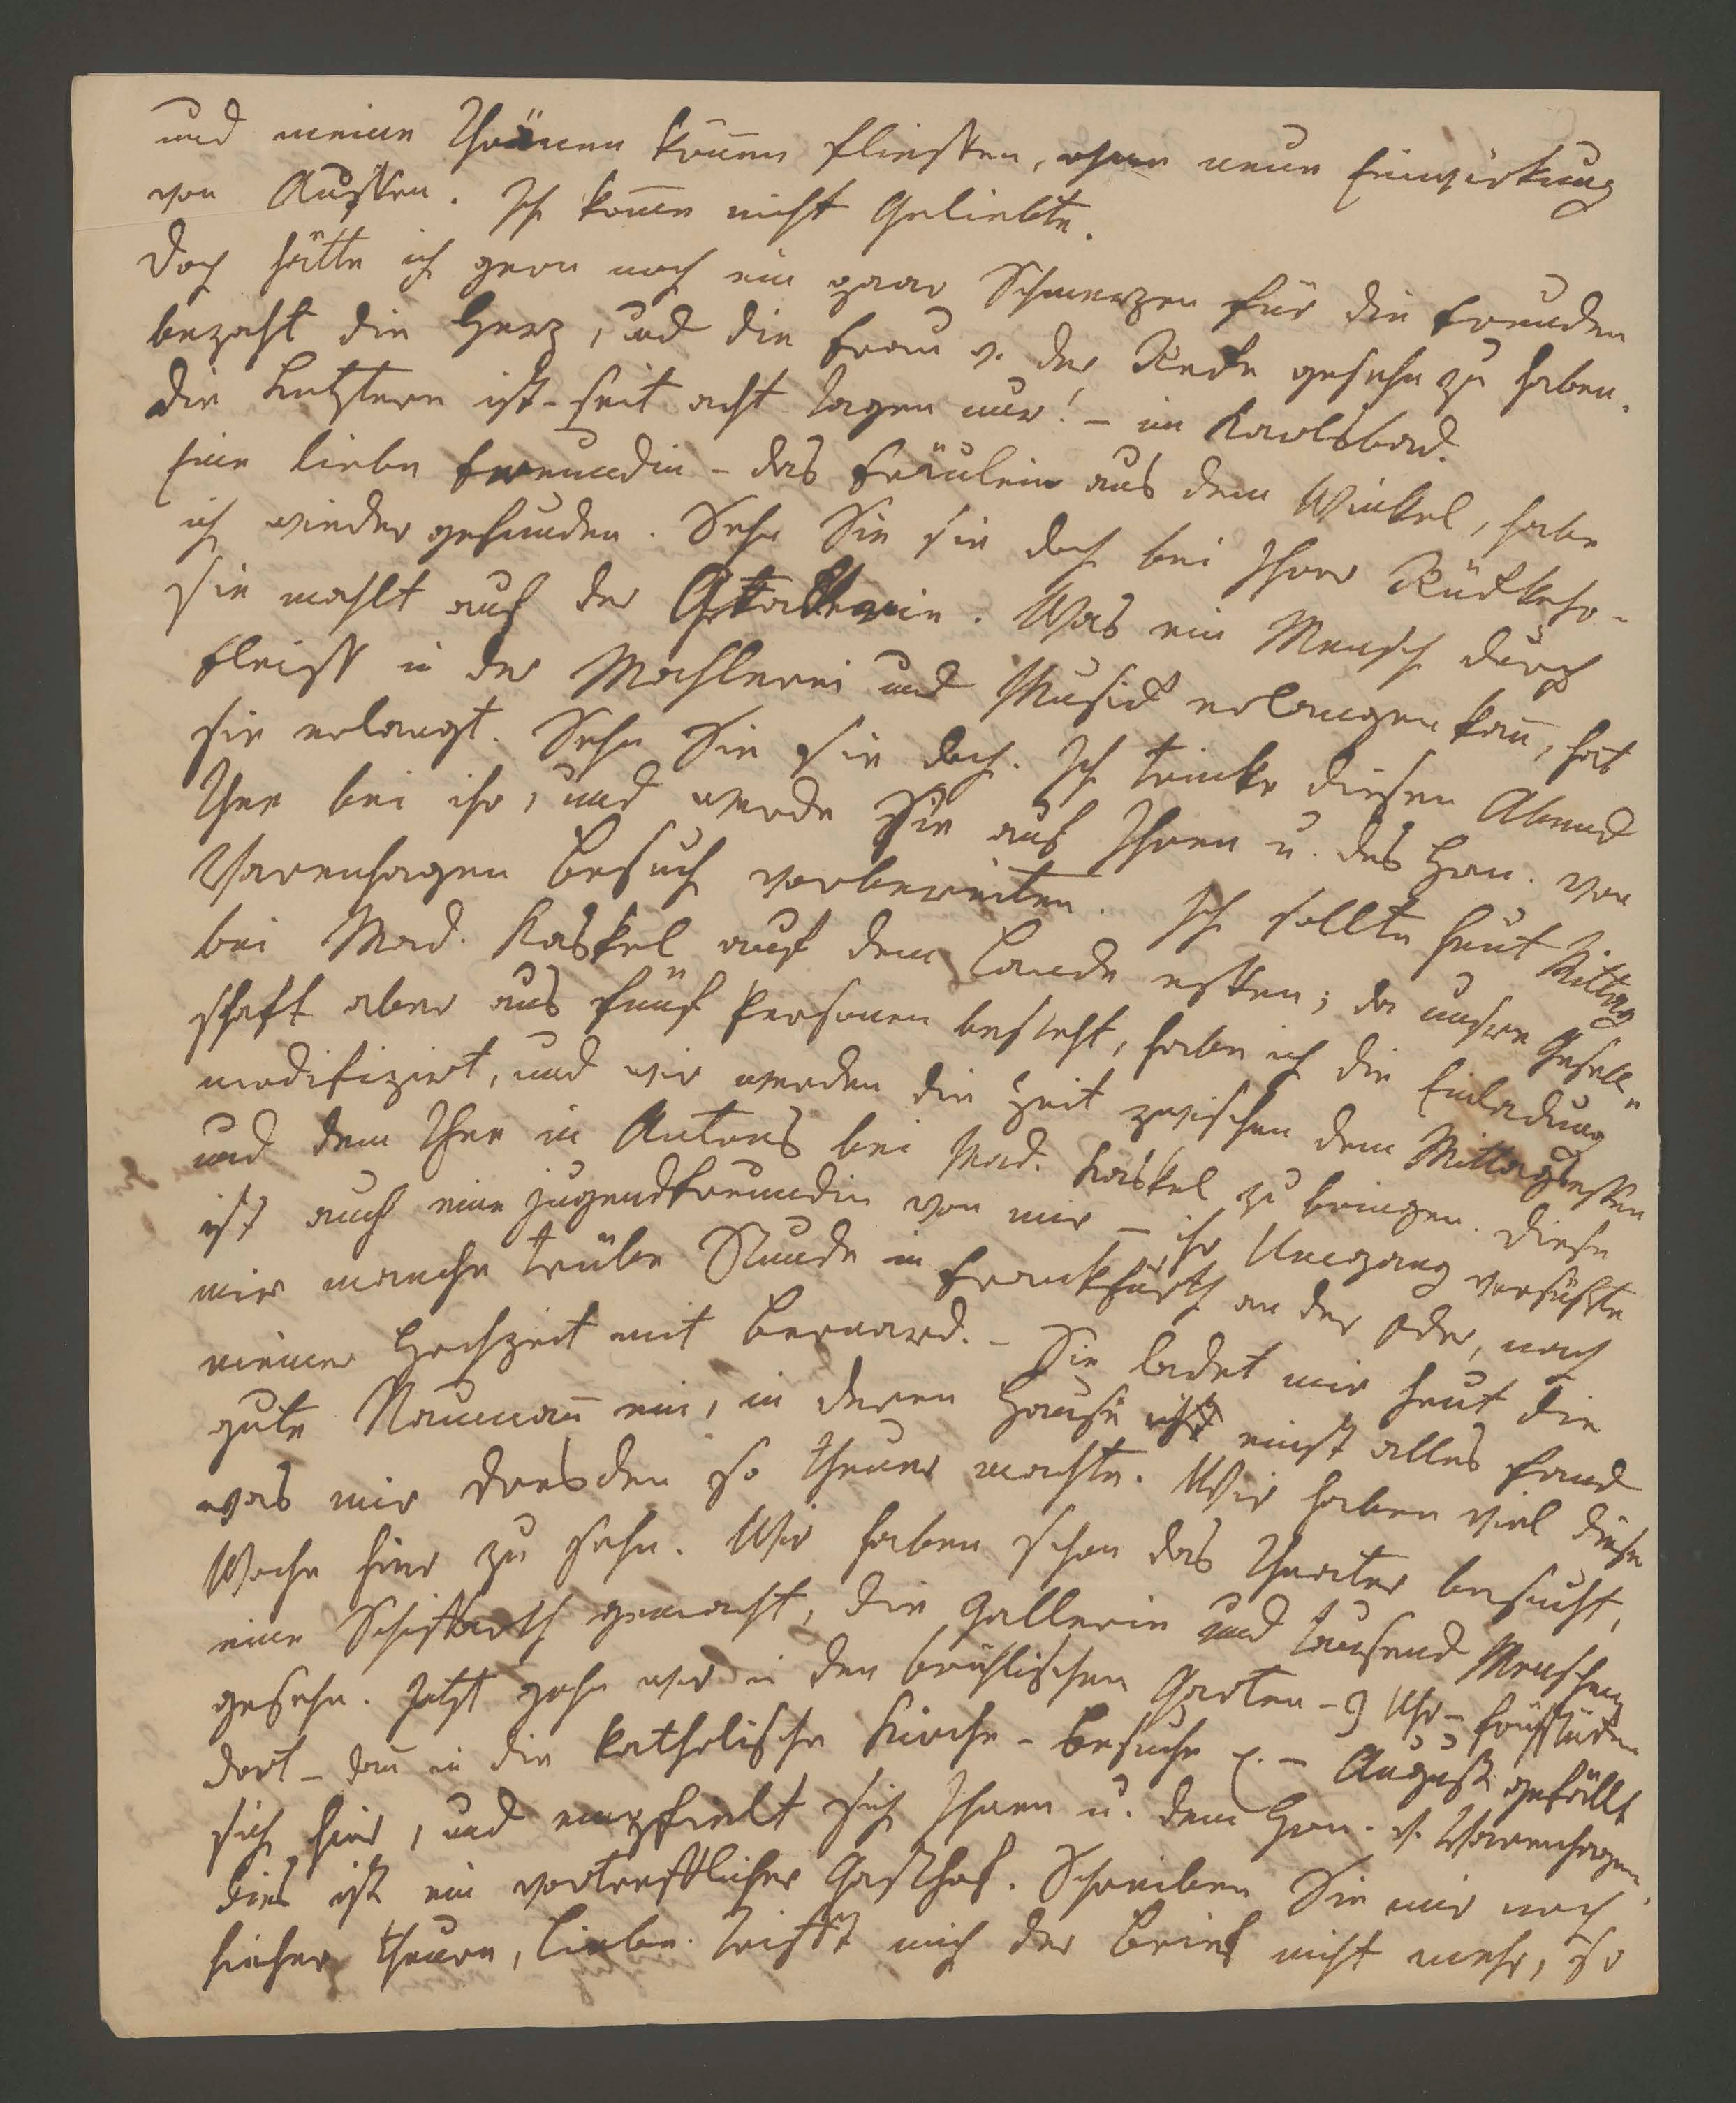 und meine Thränen können fliessen, ohne neue Einwirkung
von Aussen. Ich kom̅e nicht Geliebte.
Doch hätte ich gern noch ein paar Schmerzen für die Freuden
bezahlt die Herz, und die Frau v. der Recke gesehn zu haben.
Die Letztere ist – seit acht Tagen nur! – in Karlsbad.
Eine liebe Freundin – das Fräulein aus dem Winkel, habe
ich wieder gefunden. Sehn Sie sie doch bei Ihrer Rückkehr –
sie mahlt auf der Gallerie. Was ein Mensch durch
Fleiss in der Mahlerei und Musick erlangen kan̅, hat
sie erlangt. Sehn Sie sie doch. Ich trinke diesen Abend
Thee bei ihr, und werde Sie auf Ihren u. des Hrn. von
Varenhagen Besuch vorbereiten. Ich sollte heut Mittag
bei Mad. Kaskel auf dem Lande essen; da unsre Gesell-
schaft aber aus fünf Personen besteht, habe ich die Einladung
modifizirt, und wir werden die Zeit zwischen dem Mittagsessen
und dem Thee in Antons bei Mad. Kaskel zu bringen. Diese
ist auch eine Jugendfreundin von mir – ihr Umgang versüsste
mir manche trübe Stunde in Frankfurth an der Oder, nach
meiner Hochzeit mit Bernard. – Sie ladet mir heut die
gute Nauman̅ ein, in deren Hause ich einst alles fand
was mir Dresden so theuer machte. Wir haben viel diese
Woche hier zu sehn. Wir haben schon das Theater besucht,
eine Schiffarth gemacht, die Gallerie und tausend Menschen
gesehn. Jetzt gehn wir in den brühlischen Garten – 9 Uhr – frühstücken
dort – dan̅ in die katholische Kirche – Besuche – August gefällt
sich hier, und empfielt sich Ihnen u. dem Hrn. v. Varenhagen.
Dies ist ein vortrefflicher Gasthof. Schreiben Sie mir noch
hieher theure, Liebe. Trifft mich der Brief nicht mehr, so